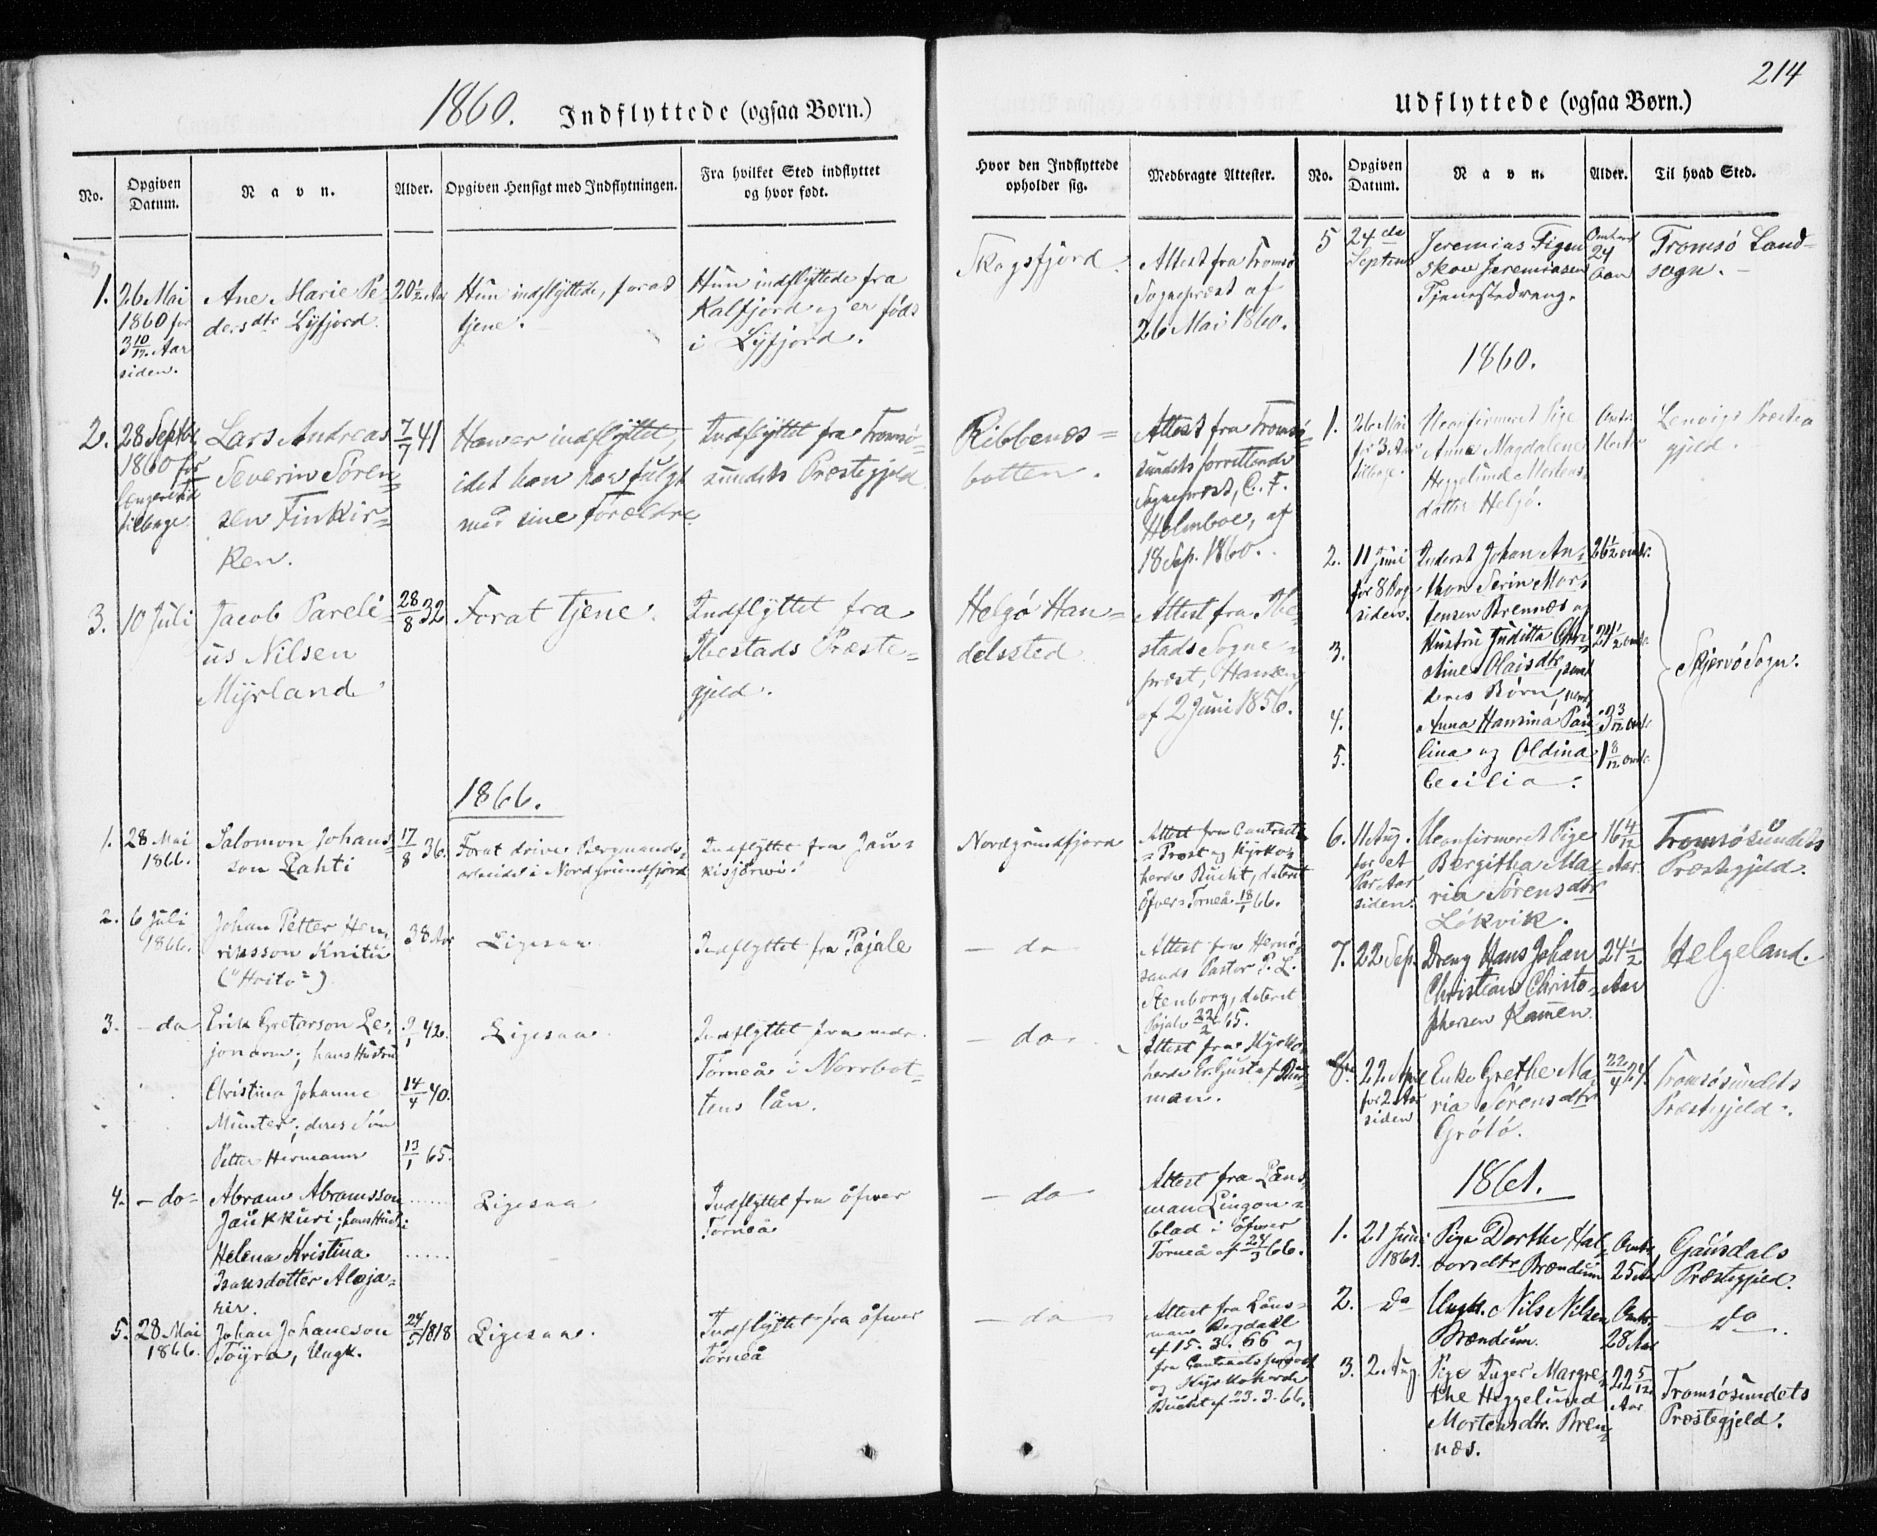 214
1860. Indflyttede (ogsaa Børn.)
Udflyttede (ogsaa Børn.)
No.
Opgiven
Datum.
Navn.
Alder.
Opgiven Hensigt med Indflytningen.
Fra hvilket Sted indflyttet
og hvor født.
Hvor den Indflyttede
opholder sig.
Medbragte Attester.
No.
Opgiven
Datum.
Navn.
Alder.
Til hvad Sted.
1.
26 Mai
1860 for
3 10/12 Aar
siden.
Ane Marie Pe-
dersdtr Lyfjord.
20 1/2 Aar
Hun indflyttede, forat
tjene.
Hun indflyttede fra
Kalfjord og er født
i Lyfjord.
Skogsfjord.
Attest fra Tromsø
Sognepræst af
26 Mai 1860.
2.
28 Septbr
1860 for
længere Tid
tilbage.
Lars Andreas
Severin Søren-
sen Finkir-
ken.
7/7 41
Han er indflyttet,
idet han har fulgt
med sine Forældre
Indflyttet fra Tromsø-
sundets Præstegjeld
Ribbenes-
botten.
Attest fra Tromsø-
sundets forrettende
Sognepræst, C. F.
Holmboe, af
18 Sep. 1860.
3.
10 Juli
Jacob Pareli-
us Nilsen
Myrland
28/8 32
Forat tjene.
Indflyttet fra
Ibestads Præste-
gjeld.
Helgø Han-
delssted
Attest fra Ibe-
stads Sogne-
præst, Hansen,
af 2 Juni 1856.
1866.
1.
28 Mai
1866.
Salomon Johans-
son Lahti
17/8 36.
Forat drive Bergmands-
arbeide i Nordgrundfjord
Indflyttet fra Jau-
kisjerwi.
Nordgrundfjord
Attest fra Contracts
-Prost og Kyrko-
herde Bucht, dateret
Öfver Torneå 18/1 66.
2.
6 Juli
1866.
Johan Petter Hen-
riksson Knitti
("Hvito")
38 Aar
Ligesaa
Indflyttet fra Pajale
- do -
Attest fra Hernö-
sands Pastor P. L.
Stenborg, dateret
Pajala 22/2 65.
3.
- do
Erik Gretarson Le-
jonarm; hans Hustru
Christina Johanne
Münter; deres Søn
Petter Hermann
9/1 42.
14/4 40.
13/1 65.
Ligesaa
Indflyttet fra nedr.
Torneå i Norrbot-
tens län.
- do -
Attest fra Kyrko-
herde Er. Gustaf Bur-
man.
4.
- do -
Abram Abramsson
Jaukkuri; hans Hustru
Helena Kristina
Isaksdotter Alaja-
rer.
......
......
Ligesaa
Indflyttet fra öfwer
Torneå
- do
Attest fra Läns-
man Lingon-
blad i öfwer
Torneå af 24/3 66.
5.
28 Mai
1866.
Johan Johanson
Töyrä, Ungk.
24/5 1818
Ligesaa.
Indflyttet fra öfwer
Torneå
- do
Attest fra Läns-
man Bergdahl
af 15. 3. 66 og
fra Contractsprost
og Kyrkoherde
Bucht af 23.3.66.
5
24de
Septem
Jeremias Figen-
skou Jeremiasen
Tjenestedreng.
Omtrent
24
Aar
Tromsø Land-
sogn.
1860.
1.
26 Mai
for 3 Aar
tilbage.
Uconfirmeret Pige
Anne Magdalene
Heggelund Mortens-
datter Helgø.
Omtr.
Lenvigs Præste-
gjeld.
2.
11 Juni
for 8 Dag
siden.
Inderst Johan An-
thon Serin Mor-
tensen Brennæs og
26 1/2 omtr.
3.
Hustru Juditta Chri-
stine Olaisdtr, samt
deres Børn, neml.
24 1/2 omtr.
4.
Anna Hansina Pau-
3 3/12 omtr.
5.
lina og Oldina
Cecilia.
1 8/12 omtr.
Skjervø Sogn.
6.
11 Aug.
for et
Par Aar
siden.
Uconfirmeret Pige
Bergitha Ma-
ria Sørensdtr
Løkvik.
16 4/12
Aar.
Tromsøsundets
Præstegjeld.
7.
22 Sep.
Dreng Hans Johan
Christian Christo-
phersen Kamen.
24 1/2
Aar
Helgeland.
8.
22 April
for 2 Aar
siden
Enke Grethe Ma-
ria Sørensdtr
Grötö.
22/4 24.
Tromsøsundets
Præstegjeld.
1861.
1.
21 Juni
1861.
Pige Dorthe Hal-
vorsdtr Brændum
Omtr.
25 Aar
Gausdals
Præstegjeld.
2.
Do
Ungk. Nils Nilsen
Brændum.
Omtr.
28 Aar
Do
3.
2 Aug.
Pige Inger Margre-
the Heggelund
Mortensdtr. Bren-
næs.
22 5/12
Aar
Tromsøsundets
Præstegjeld.